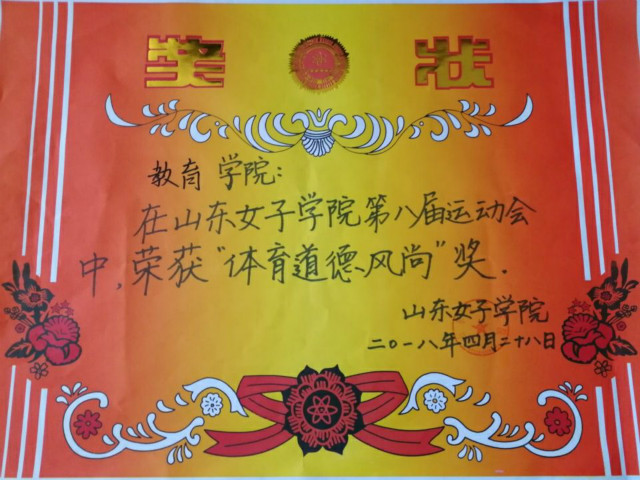 奖 状
教育 学院:
在山东女子学院第八届运动会
中,荣获“体育道德风尚”奖.
山东女子学院
二〇一八年四月二十八日